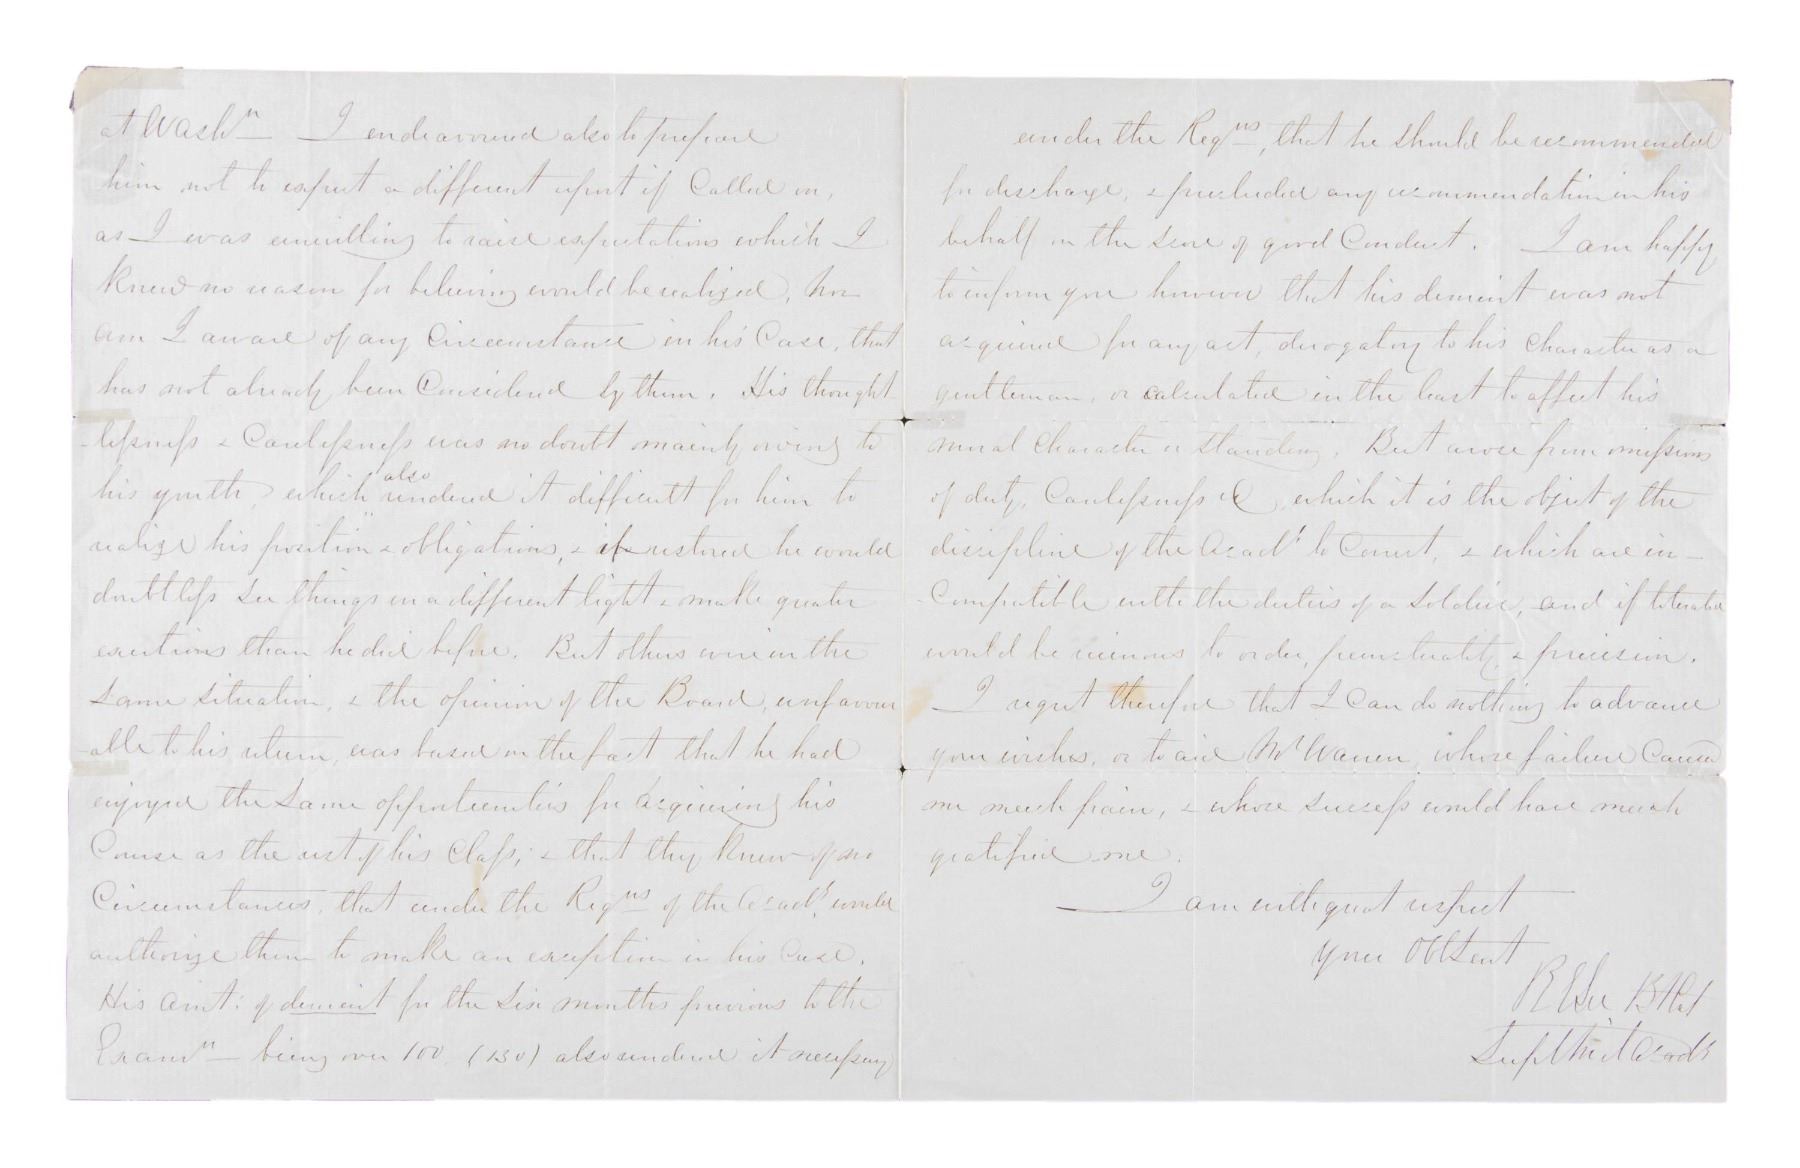 at Washn I endeavoured also to prepare
him not to expect a different report if Called on,
as I was unwilling to raise expectations which I
knew no reason for believing would be realized, nor
am I aware of any Circumstance in his Case, that
has not already been Considered by them. His thought
-lessness & Carelessness was no doubt mainly owing to
his youth, which also rendered it difficult for him to
realize his position & obligations, & if restored he would
doubtless see things in a different light & make greater
exertions than he did before. But others were in the
same situation, & the opinion of the Board, unfavour
-able to his return, was based on the fact that he had
enjoyed the same opportunities for acquiring his
Course as the rest of his Class; & that they knew of no
Circumstances, that under the Regns of the Acady, would
authorize them to make an exception in his Case.
His amt: of demerit for the six months previous to the
Examn being over 100 (130) also rendered it necessary
under the Regns, that he should be recommended
for discharge, & precluded any recommendation in his
behalf on the score of good Conduct. I am happy
to inform you however that his demerit was not
acquired for any act, derogatory to his character as a
gentleman, or calculated in the least to affect his
moral character or standing. But arose from omissions
of duty, Carelessness &c, which it is the object of the
discipline of the Acady to Correct, & which are in-
-Compatible with the duties of a soldier, and if tolerated
would be ruinous to order, punctuality & precision.
I regret therefore that I Can do nothing to advance
your wishes, or to aid Mr Warren, whose failure Caused
me much pain, & whose success would have much
gratified me.
I am with great respect
your Obt Servt
R E Lee Bt Col
Supt Mil Acady